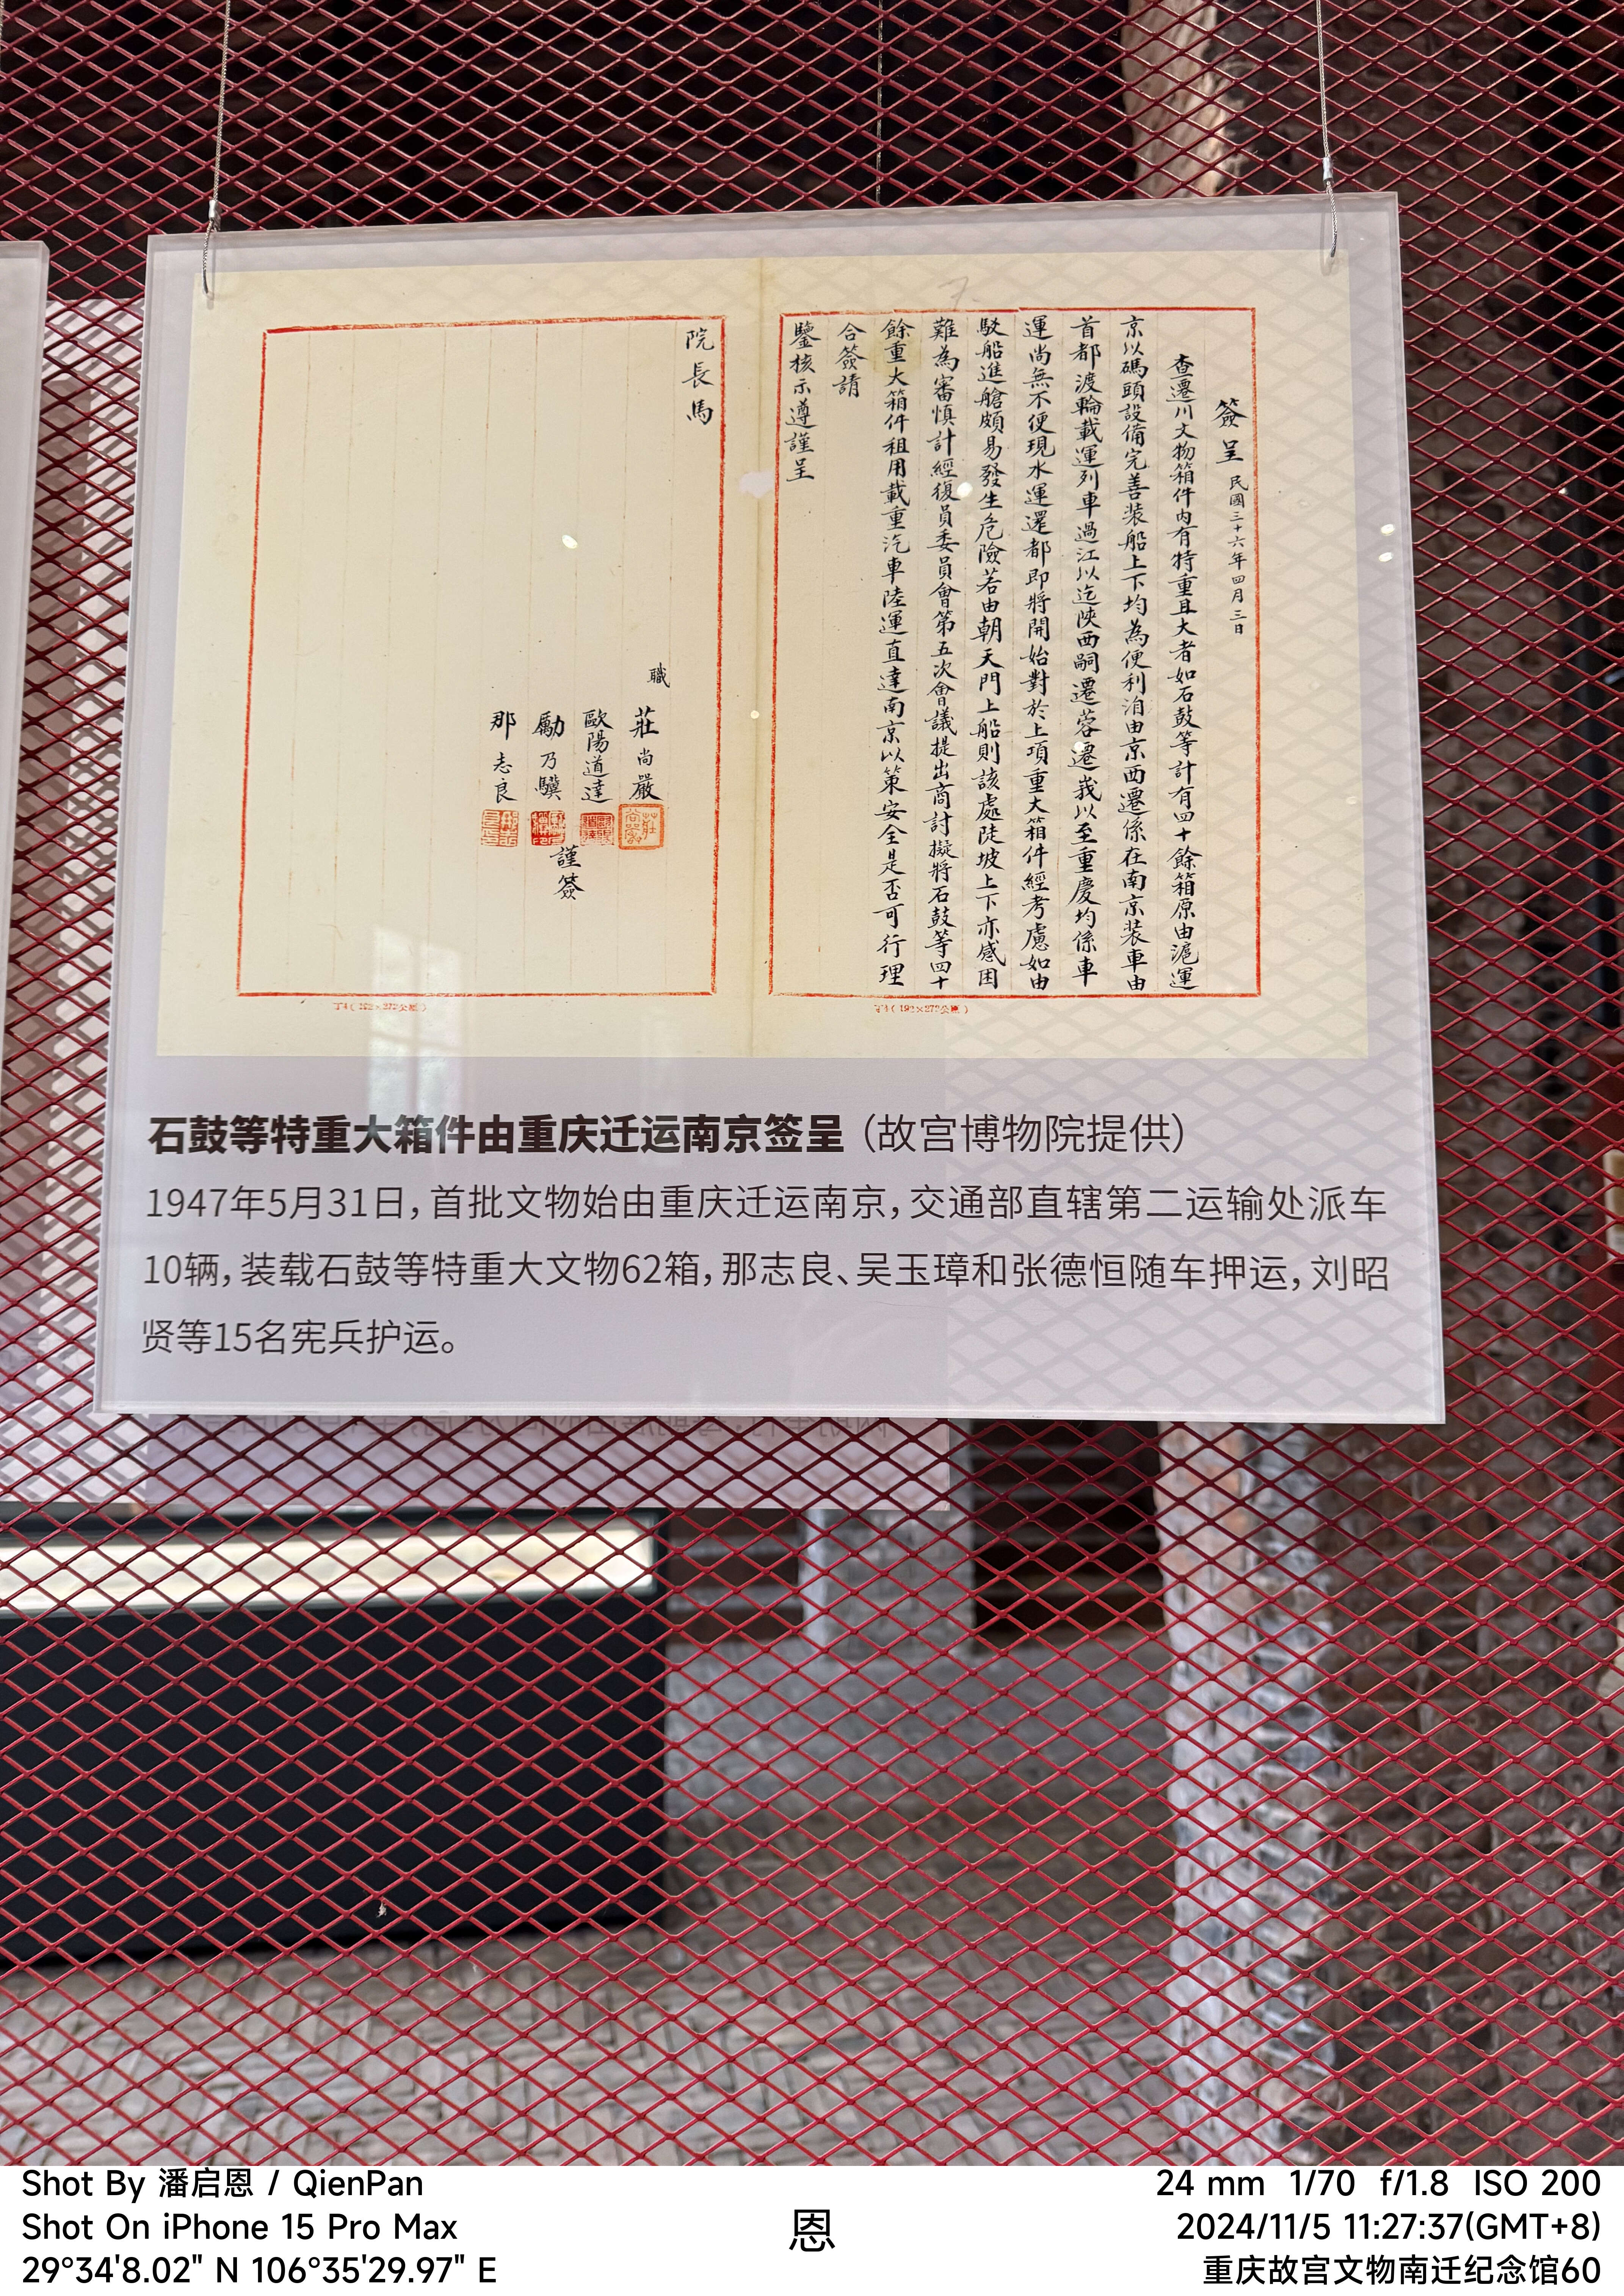 簽呈 民國三十六年四月三日
查遷川文物箱件內有特重且大者如石鼓等計有四十餘箱原由滬運
京以碼頭設備完善装船上下均為便利洎由京西遷係在南京装車由
首都渡輪載運列車過江以迄陝西嗣遷蓉遷峩以至重慶均係車
運尚無不便現水運還都即將開始對於上項重大箱件經考慮如由
駁船進艙頗易發生危險若由朝天門上船則該處陡坡上下亦感困
難為審慎計經復員委員會第五次會議提出商討擬將石鼓等四十
餘重大箱件租用載重汽車陸運直達南京以策安全是否可行理
合簽請
鑒核示遵謹呈
院長馬
職
莊尚嚴
歐陽道達
勵乃驥
那志良
謹簽
石鼓等特重大箱件由重庆迁运南京签呈（故宫博物院提供）
1947年5月31日，首批文物始由重庆迁运南京，交通部直辖第二运输处派车
10辆，装载石鼓等特重大文物62箱，那志良、吴玉璋和张德恒随车押运，刘昭
贤等15名宪兵护运。
Shot By 潘启恩 / QienPan
Shot On iPhone 15 Pro Max
29°34'8.02" N 106°35'29.97" E
恩
24 mm 1/70 f/1.8 ISO 200
2024/11/5 11:27:37(GMT+8)
重庆故宫文物南迁纪念馆60